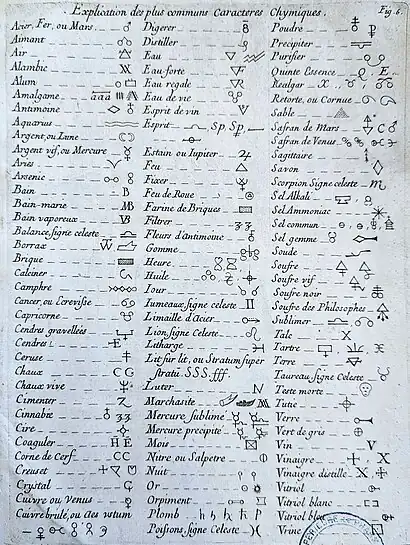 Explication des plus communs Caracteres Chymiques.
Fig. 6.
Acier, Fer, ou Mars
Aimant
Air
Alambic
Alum
Amalgame
Antimoine
Aquarius
Argent, ou Lune
Argent vif, ou Mercure
Aries
Arsenic
Bain
Bain-marie
Bain vaporeux
Balance, signe celeste
Borrax
Brique
Calciner
Camphre
Cancer, ou Ecrevisse
Capricorne
Cendres gravellées
Cendres
Ceruse
Chaux
Chaux vive
Cimenter
Cinnabre
Cire
Coaguler
Corne de Cerf
Creuset
Crystal
Cuivre ou Venus
Cuivre brulé, ou aes ustum
Digerer
Distiller
Eau
Eau-forte
Eau regale
Eau de vie
Esprit de vin
Esprit
Estain ou Iupiter
Feu
Fixer
Feu de Roue
Farine de Briques
Filtrer
Fleurs d'antimoine
Gomme
Heure
Huile
Iour
Iumeaux, signe celeste
Limaille d'Acier
Lion, signe Celeste
Litharge
Lit sur lit, ou Stratum super
strati SSS. fff.
Luter
Marchasite
Mercure sublimé
Mercure precipité
Mois
Nitre ou Salpetre
Nuit
Or
Orpiment
Plomb
Poissons, signe Celeste
Poudre
Precipiter
Purifier
Quinte Essence Q. E.
Realgar
Retorte, ou Cornue
Sable
Safran de Mars
Safran de Venus
Sagittaire
Savon
Scorpion Signe celeste
Sel Alkali
Sel Ammoniac
Sel commun
Sel gemme
Soude
Soufre
Soufre vif
Soufre noir
Soufre des Philosophes
Sublimer
Talc
Tartre
Terre
Taureau, signe Celeste
Teste morte
Tutie
Verre
Vert de gris
Vin
Vinaigre
Vinaigre distille
Vitriol
Vitriol blanc
Vitriol bleu
Vrine